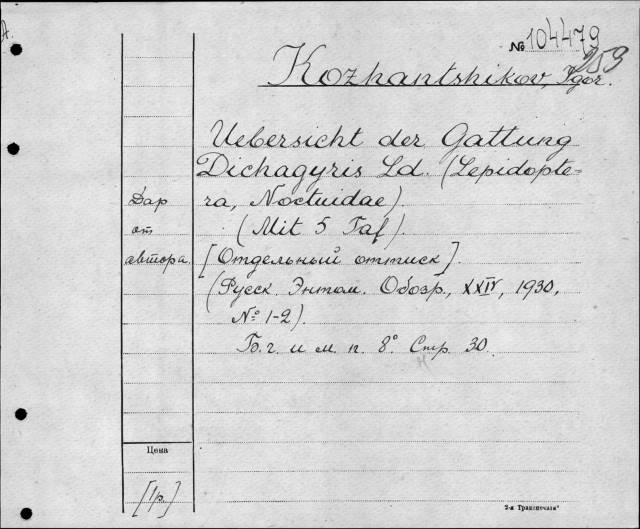 А.
№ 104479
259
Kozhantshikov, Igor.
Uebersicht der Gattung
Dichagyris Ld. (Lepidopte-
ra, Noctuidae).
(Mit 5 Taf).
[Отдельный оттиск].
(Русск. Энтом. Обозр., XXIV, 1930,
№ 1-2).
Б. г. и м. п. 8°. Стр. 30.
Дар
от
автора.
Цена
[1р.]
2-я Транспечати